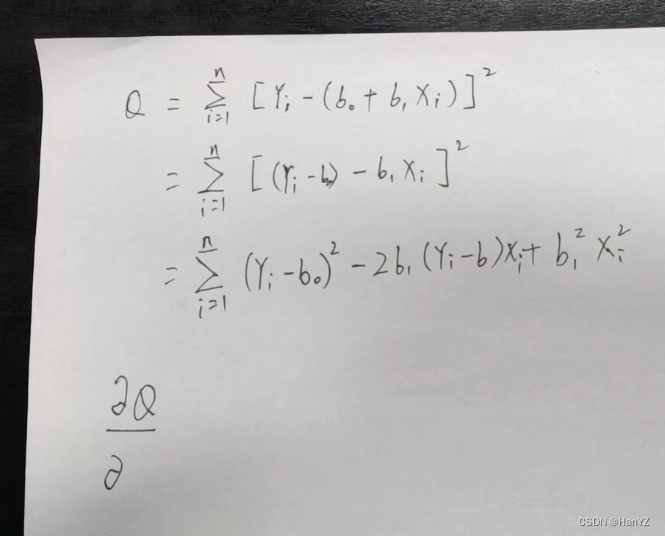 Q = ∑_{i=1}^{n} [Y_i - (b_0 + b_1 X_i)]^2
= ∑_{i=1}^{n} [(Y_i - b_0) - b_1 X_i]^2
= ∑_{i=1}^{n} (Y_i - b_0)^2 - 2b_1 (Y_i - b) X_i + b_1^2 X_i^2
∂Q
∂
CSDN @HanYZ